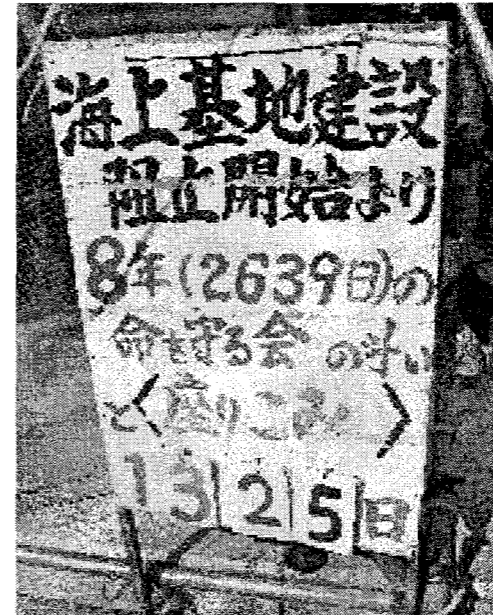 海上基地建設
阻止開始より
8年(2639日)の
命を守る会の斗い
と〈座りこみ〉
1325日